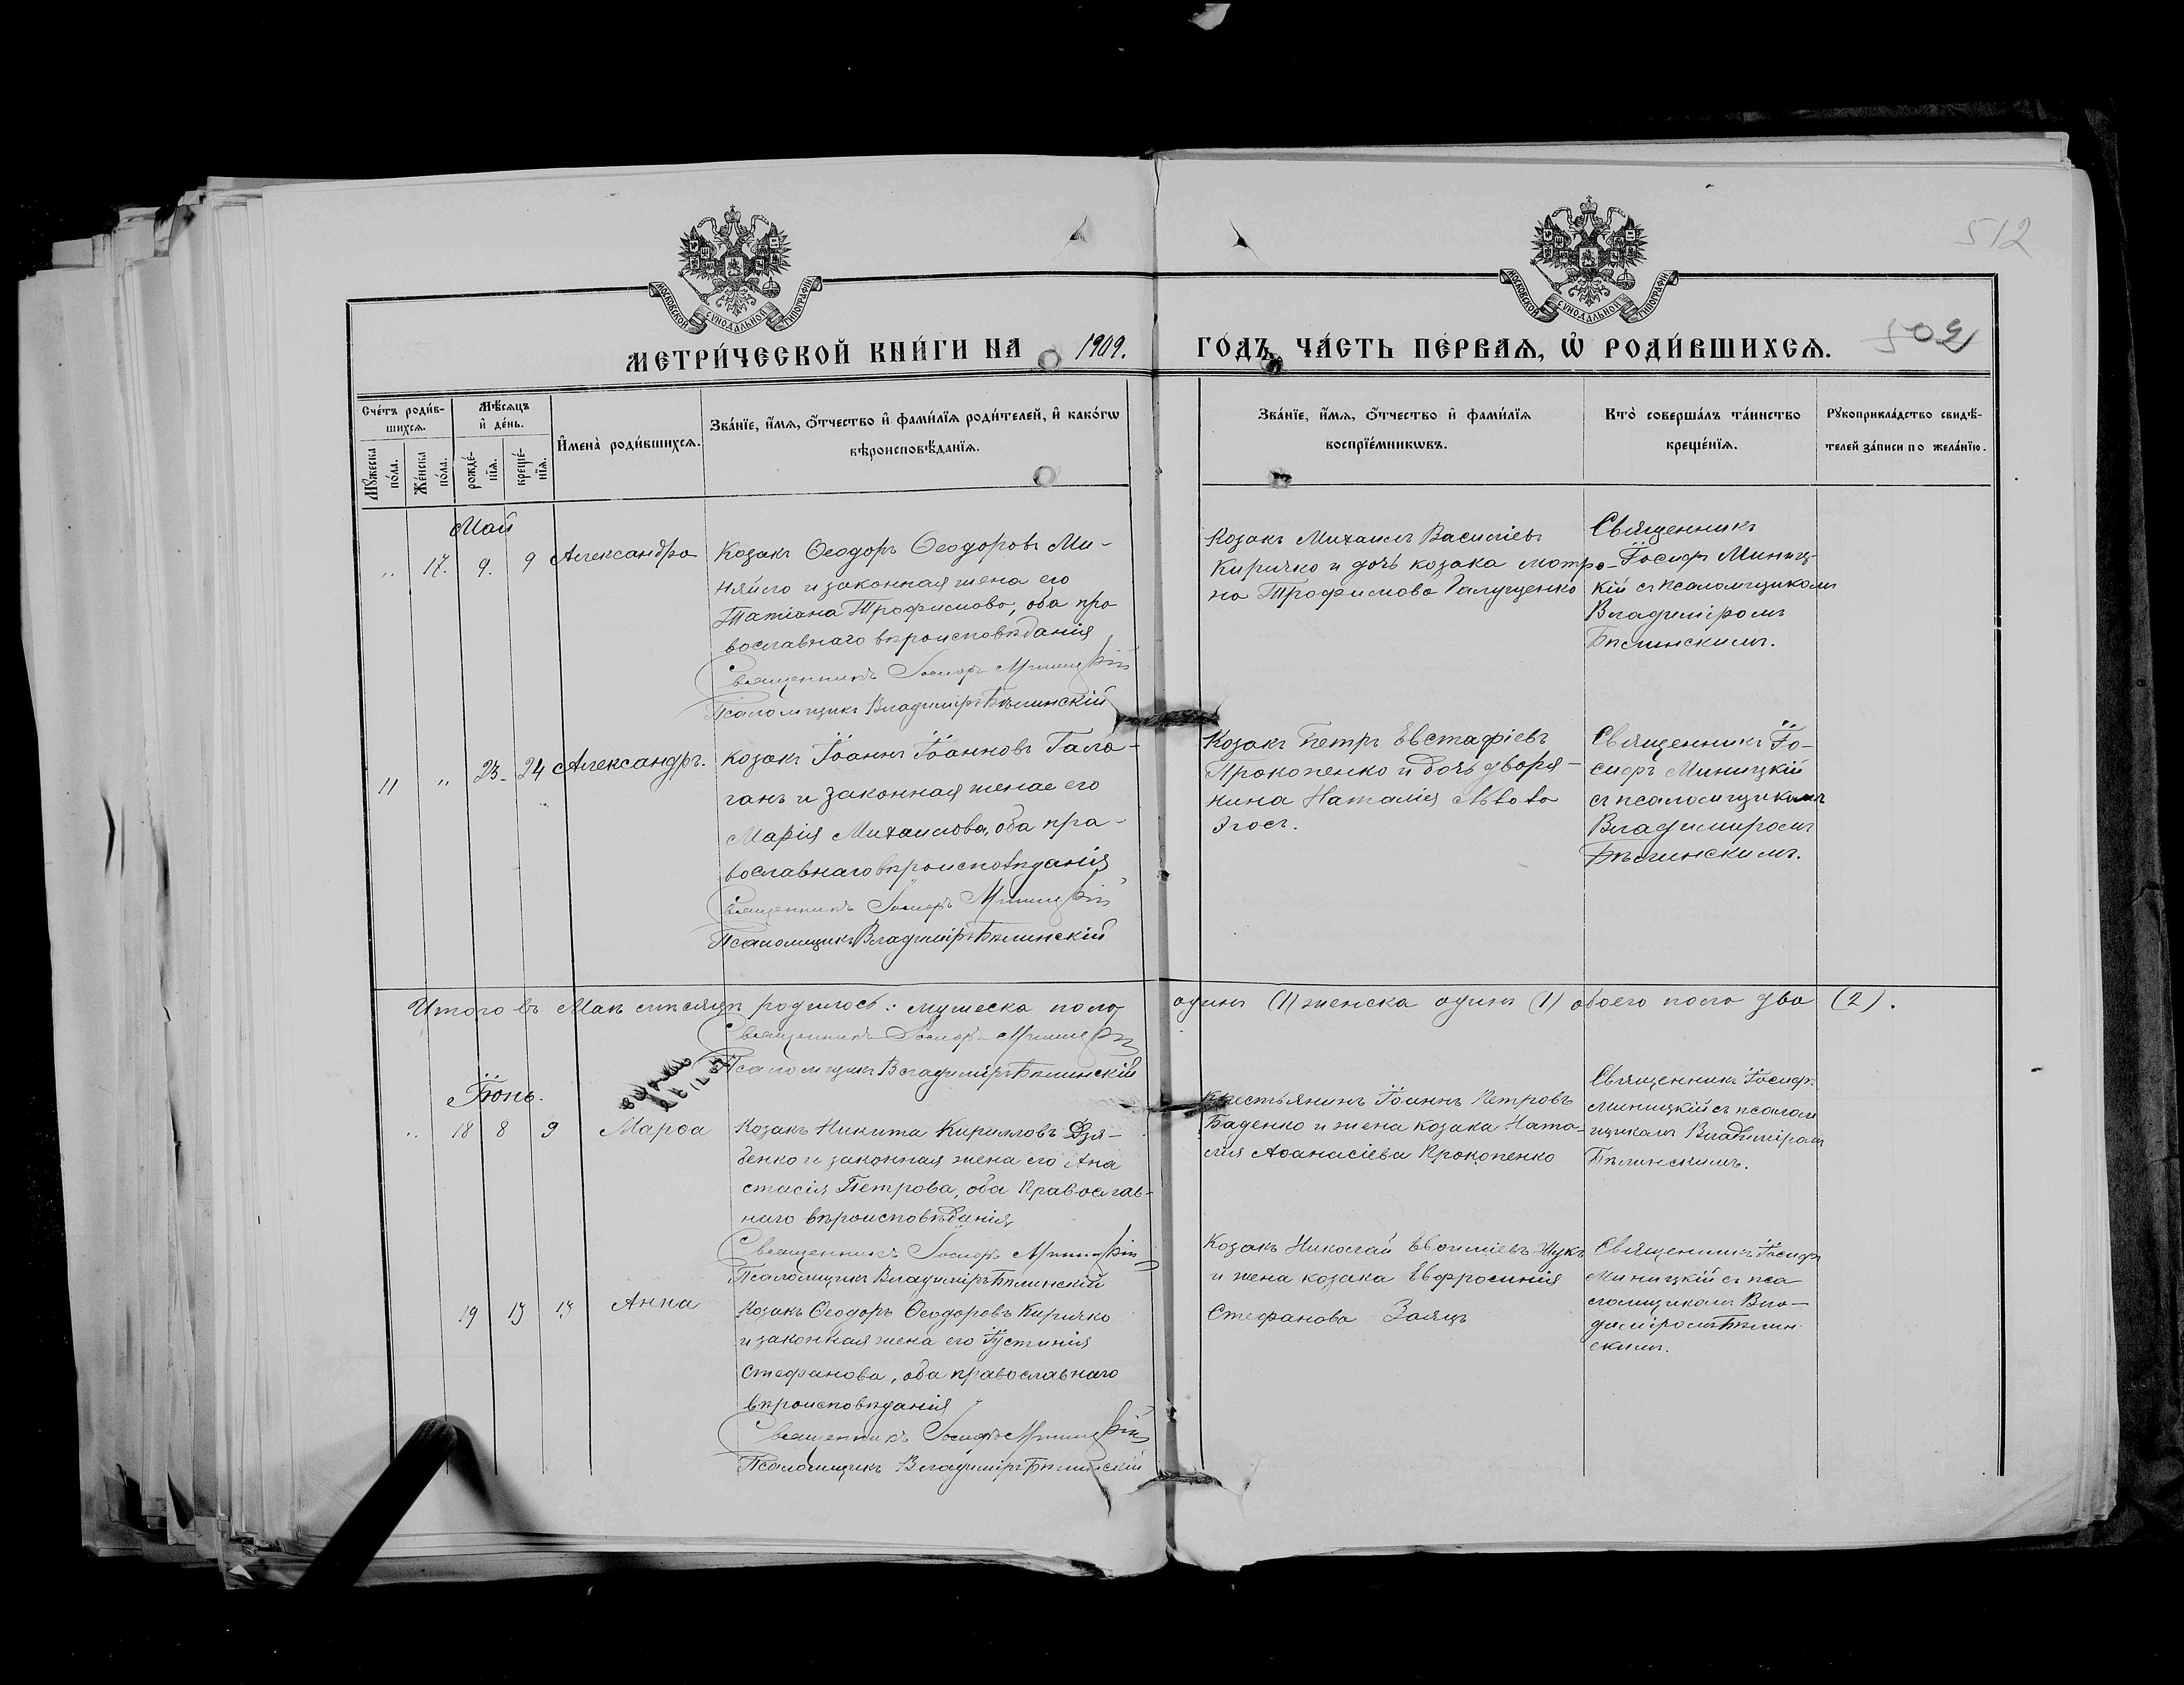 512
МОСКОВСКОЙ СѴНОДАЛЬНОЙ ТИПОГРАФІИ
МОСКОВСКОЙ СѴНОДАЛЬНОЙ ТИПОГРАФІИ
МЕТРИ́ЧЕСКОЙ КНИ́ГИ НА 1909. ГО́ДЪ, ЧА́СТЬ ПЕ́РВАѦ, Ѡ҆ РОДИ́ВШИХСѦ.
502
Сче́тъ роди́в-
шихсѧ.
Мꙋ́жеска по́ла.
Же́нска по́ла.
Мѣ́сѧцъ
и҆ де́нь.
рожде́-
нїѧ.
креще́-
нїѧ.
И҆мена̀ роди́вшихсѧ.
Зва́нїе, и҆́мѧ, ѻ҆́тчество и҆ фами́лїѧ роди́телей, и҆ како́гѡ
вѣроисповѣ́данїѧ.
Зва́нїе, и҆́мѧ, ѻ҆́тчество и҆ фами́лїѧ
воспрїе́мникѡвъ.
Кто̀ соверша́лъ та́инство
креще́нїѧ.
Рꙋкоприкла́дство свидѣ́-
телей за́писи по жела́нїю.
Май
„ 17. 9. 9 Александра
Козакъ Ѳеодоръ Ѳеодоровъ Ми-
няйло и законная жена его
Татіана Трофимова, оба пра
вославнаго вѣроисповѣданія
Священникъ Іосифъ Миницкій
Псаломщикъ Владиміръ Бѣлинскій
Козакъ Михаилъ Василіевъ
Киричко и дочь козака Матро-
на Трофимова Галущенко
Священникъ
Іосифъ Миниц-
кій съ псаломщикомъ
Владиміромъ
Бѣлинскимъ.
11 „ 23. 24 Александръ.
Козакъ Іоаннъ Іоанновъ Гала-
ганъ и законная женае его
Марія Михаилова, оба пра-
вославнаго вѣроисповѣданія
Священникъ Іосифъ Миницкій
Псаломщикъ Владиміръ Бѣлинскій
Козакъ Петръ Евстафіевъ
Прокопенко и дочь дворя-
нина Наталія Львова
Эгосъ.
Священникъ Іо-
сифъ Миницкій
съ псаломщикомъ
Владимиромъ
Бѣлинскимъ.
Итого въ Маѣ мѣсяцѣ родилось: мужеска пола одинъ (1) женска одинъ (1) обоего пола два (2).
Священникъ Іосифъ Миницкій
Псаломщикъ Владиміръ Бѣлинскій
Іюнь.
„ 18 8 9 Марѳа
Козакъ Никита Кирилловъ Дзя-
бенко и законная жена его Ана
стасія Петрова, оба православ-
наго вѣроисповѣданія
Священникъ Іосифъ Миницкій
Псаломщикъ Владиміръ Бѣлинскій
Крестьянинъ Іоаннъ Петровъ
Баденко и жена козака Ната-
лія Аѳанасіева Прокопенко
Священникъ Іосифъ
Миницкій съ псалом
щикомъ Владиміромъ
Бѣлинскимъ.
19 13 13 Анна
Козакъ Ѳеодоръ Ѳеодоровъ Киричко
и законная жена его Іустинія
Стефанова, оба православнаго
вѣроисповѣданія
Священникъ Іосифъ Миницкій
Псаломщикъ Владиміръ Бѣлинскій
Козакъ Николай Евѳиміевъ Жукъ
и жена козака Евфросинія
Стефанова Заяцъ
Священникъ Іосифъ
Миницкій съ пса
ломщикомъ Вла-
диміромъ Бѣлин
скимъ.